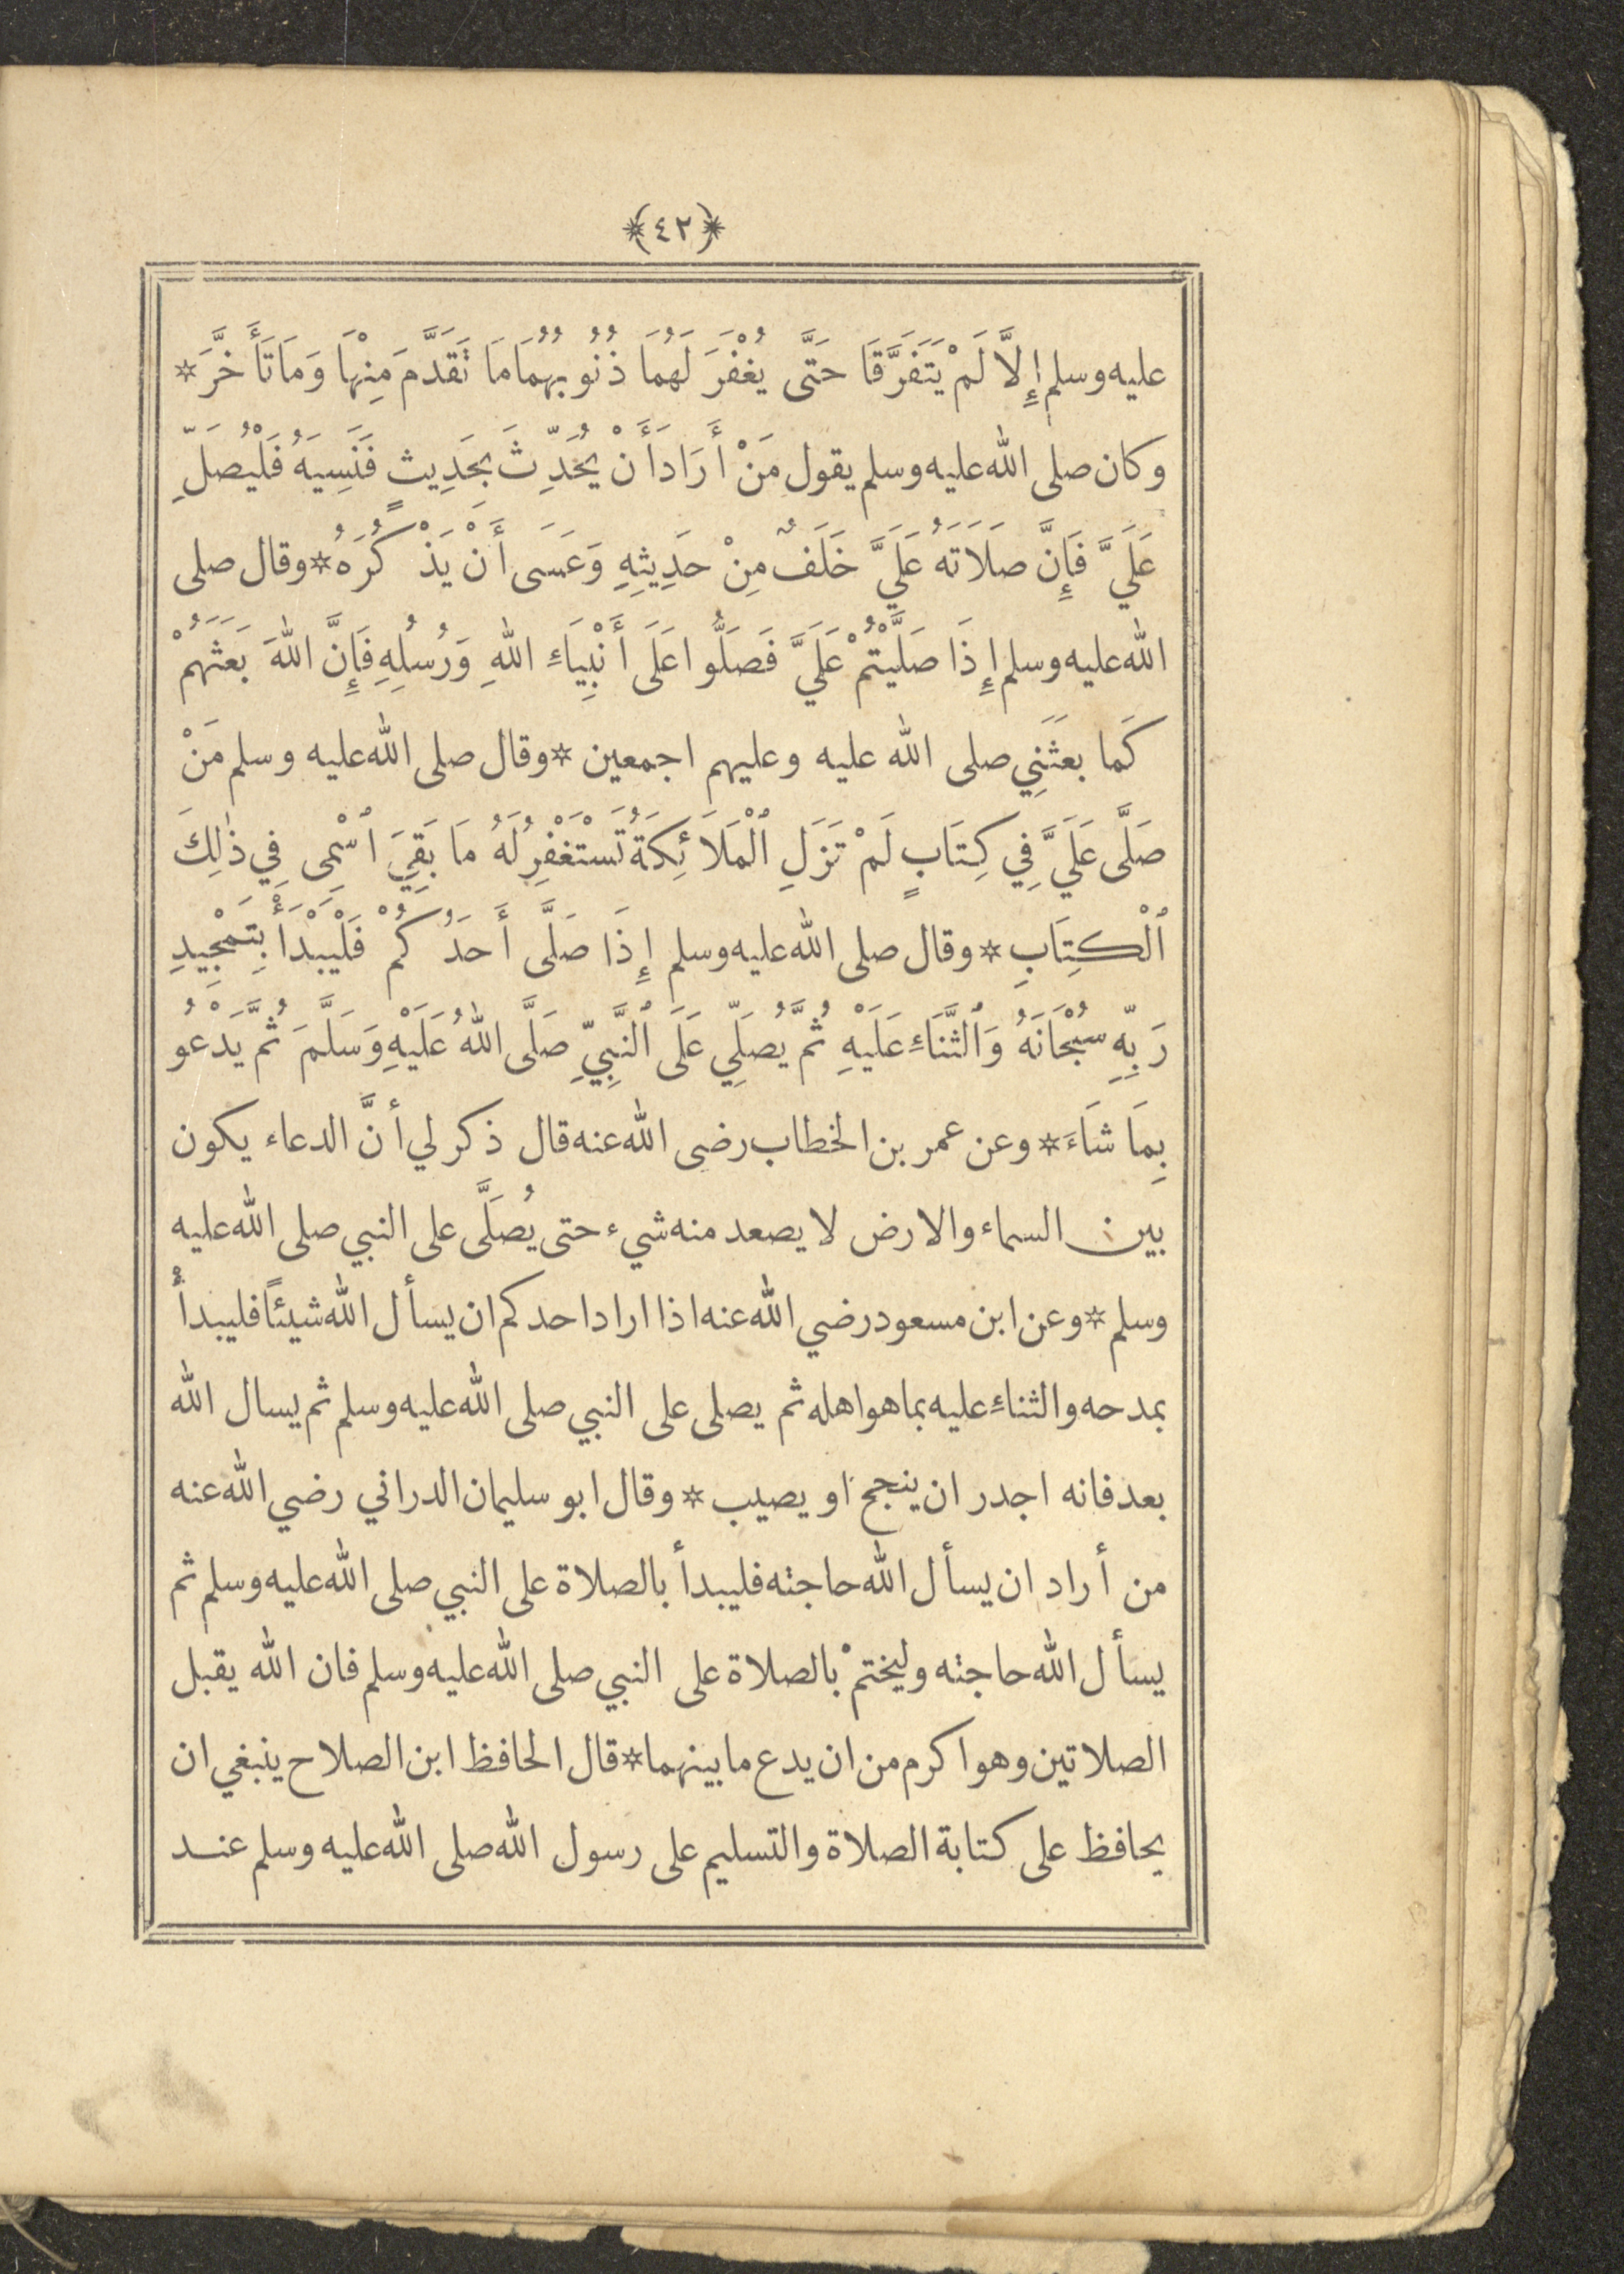 ﴿٤٢﴾
عليه وسلم إِلَّا لَمْ يَتَفَرَّقَا حَتَّى يُغْفَرَ لَهُمَا ذُنُوبُهُمَا مَا تَقَدَّمَ مِنْهَا وَمَا تَأَخَّرَ *
وكان صلى الله عليه وسلم يقول مَنْ أَرَادَ أَنْ يُحَدِّثَ بِحَدِيثٍ فَنَسِيَهُ فَلْيُصَلِّ
عَلَيَّ فَإِنَّ صَلَاتَهُ عَلَيَّ خَلَفٌ مِنْ حَدِيثِهِ وَعَسَى أَنْ يَذْكُرَهُ * وقال صلى
الله عليه وسلم إِذَا صَلَّيْتُمْ عَلَيَّ فَصَلُّوا عَلَى أَنْبِيَاءِ اللهِ وَرُسُلِهِ فَإِنَّ اللهَ بَعَثَهُمْ
كَما بعَثَنِي صلى الله عليه وعليهم اجمعين * وقال صلى الله عليه وسلم مَنْ
صَلَّى عَلَيَّ فِي كِتَابٍ لَمْ تَزَلِ ٱلْمَلَائِكَةُ تَسْتَغْفِرُ لَهُ مَا بَقِيَ ٱسْمِى فِي ذٰلِكَ
ٱلْكِتَابِ * وقال صلى الله عليه وسلم إِذَا صَلَّى أَحَدُكُمْ فَلْيَبْدَأْ بِتَمْجِيدِ
رَبِّهِ سُبْحَانَهُ وَٱلثَّنَاءِ عَلَيْهِ ثُمَّ يُصَلِّي عَلَى ٱلنَّبِيِّ صَلَّى اللهُ عَلَيْهِ وَسَلَّمَ ثُمَّ يَدْعُو
بِمَا شَاءَ * وعن عمر بن الخطاب رضى الله عنه قال ذكر لي أنَّ الدعاء يكون
بين السماء والارض لا يصعد منه شيء حتى يُصَلَّى على النبي صلى الله عليه
وسلم * وعن ابن مسعود رضي الله عنه اذا اراد احدكم ان يسأل الله شيئًا فليبدأْ
بمدحه والثناءِ عليه بما هو اهله ثم يصلى على النبي صلى الله عليه وسلم ثم يسال الله
بعد فانه اجدر ان ينجح او يصيب * وقال ابو سليمان الدراني رضي الله عنه
من أراد ان يسأل الله حاجته فليبدأ بالصلاة على النبي صلى الله عليه وسلم ثم
يسأل الله حاجته وليختمْ بالصلاة على النبي صلى الله عليه وسلم فان الله يقبل
الصلاتين وهو اكرم من ان يدع ما بينهما * قال الحافظ ابن الصلاح ينبغي ان
يحافظ على كتابة الصلاة والتسليم على رسول الله صلى الله عليه وسلم عنـد